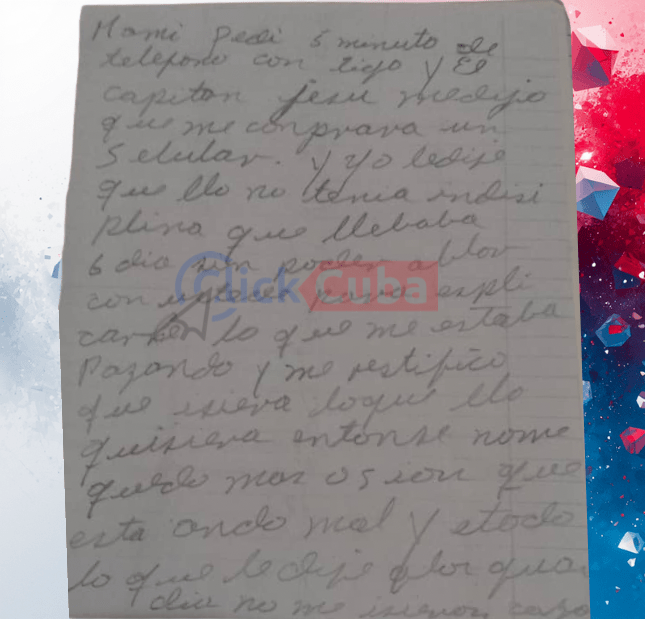 Mami pedi 5 minuto de
telefono con tigo y El
capitan jesu medijo
que me conprara un
Selular. y yo ledije
que llo no tenia indisi
plina que llebaba
6 dia sin poder ablar
con ustede para espli
carle lo que me estaba
Pazando y me restifico
que isiera loque llo
quisiera entonse nome
quedo mas osion que
esta ando mal y etodo
lo que le dije a los guar
dia no me isieron caso
Click Cuba